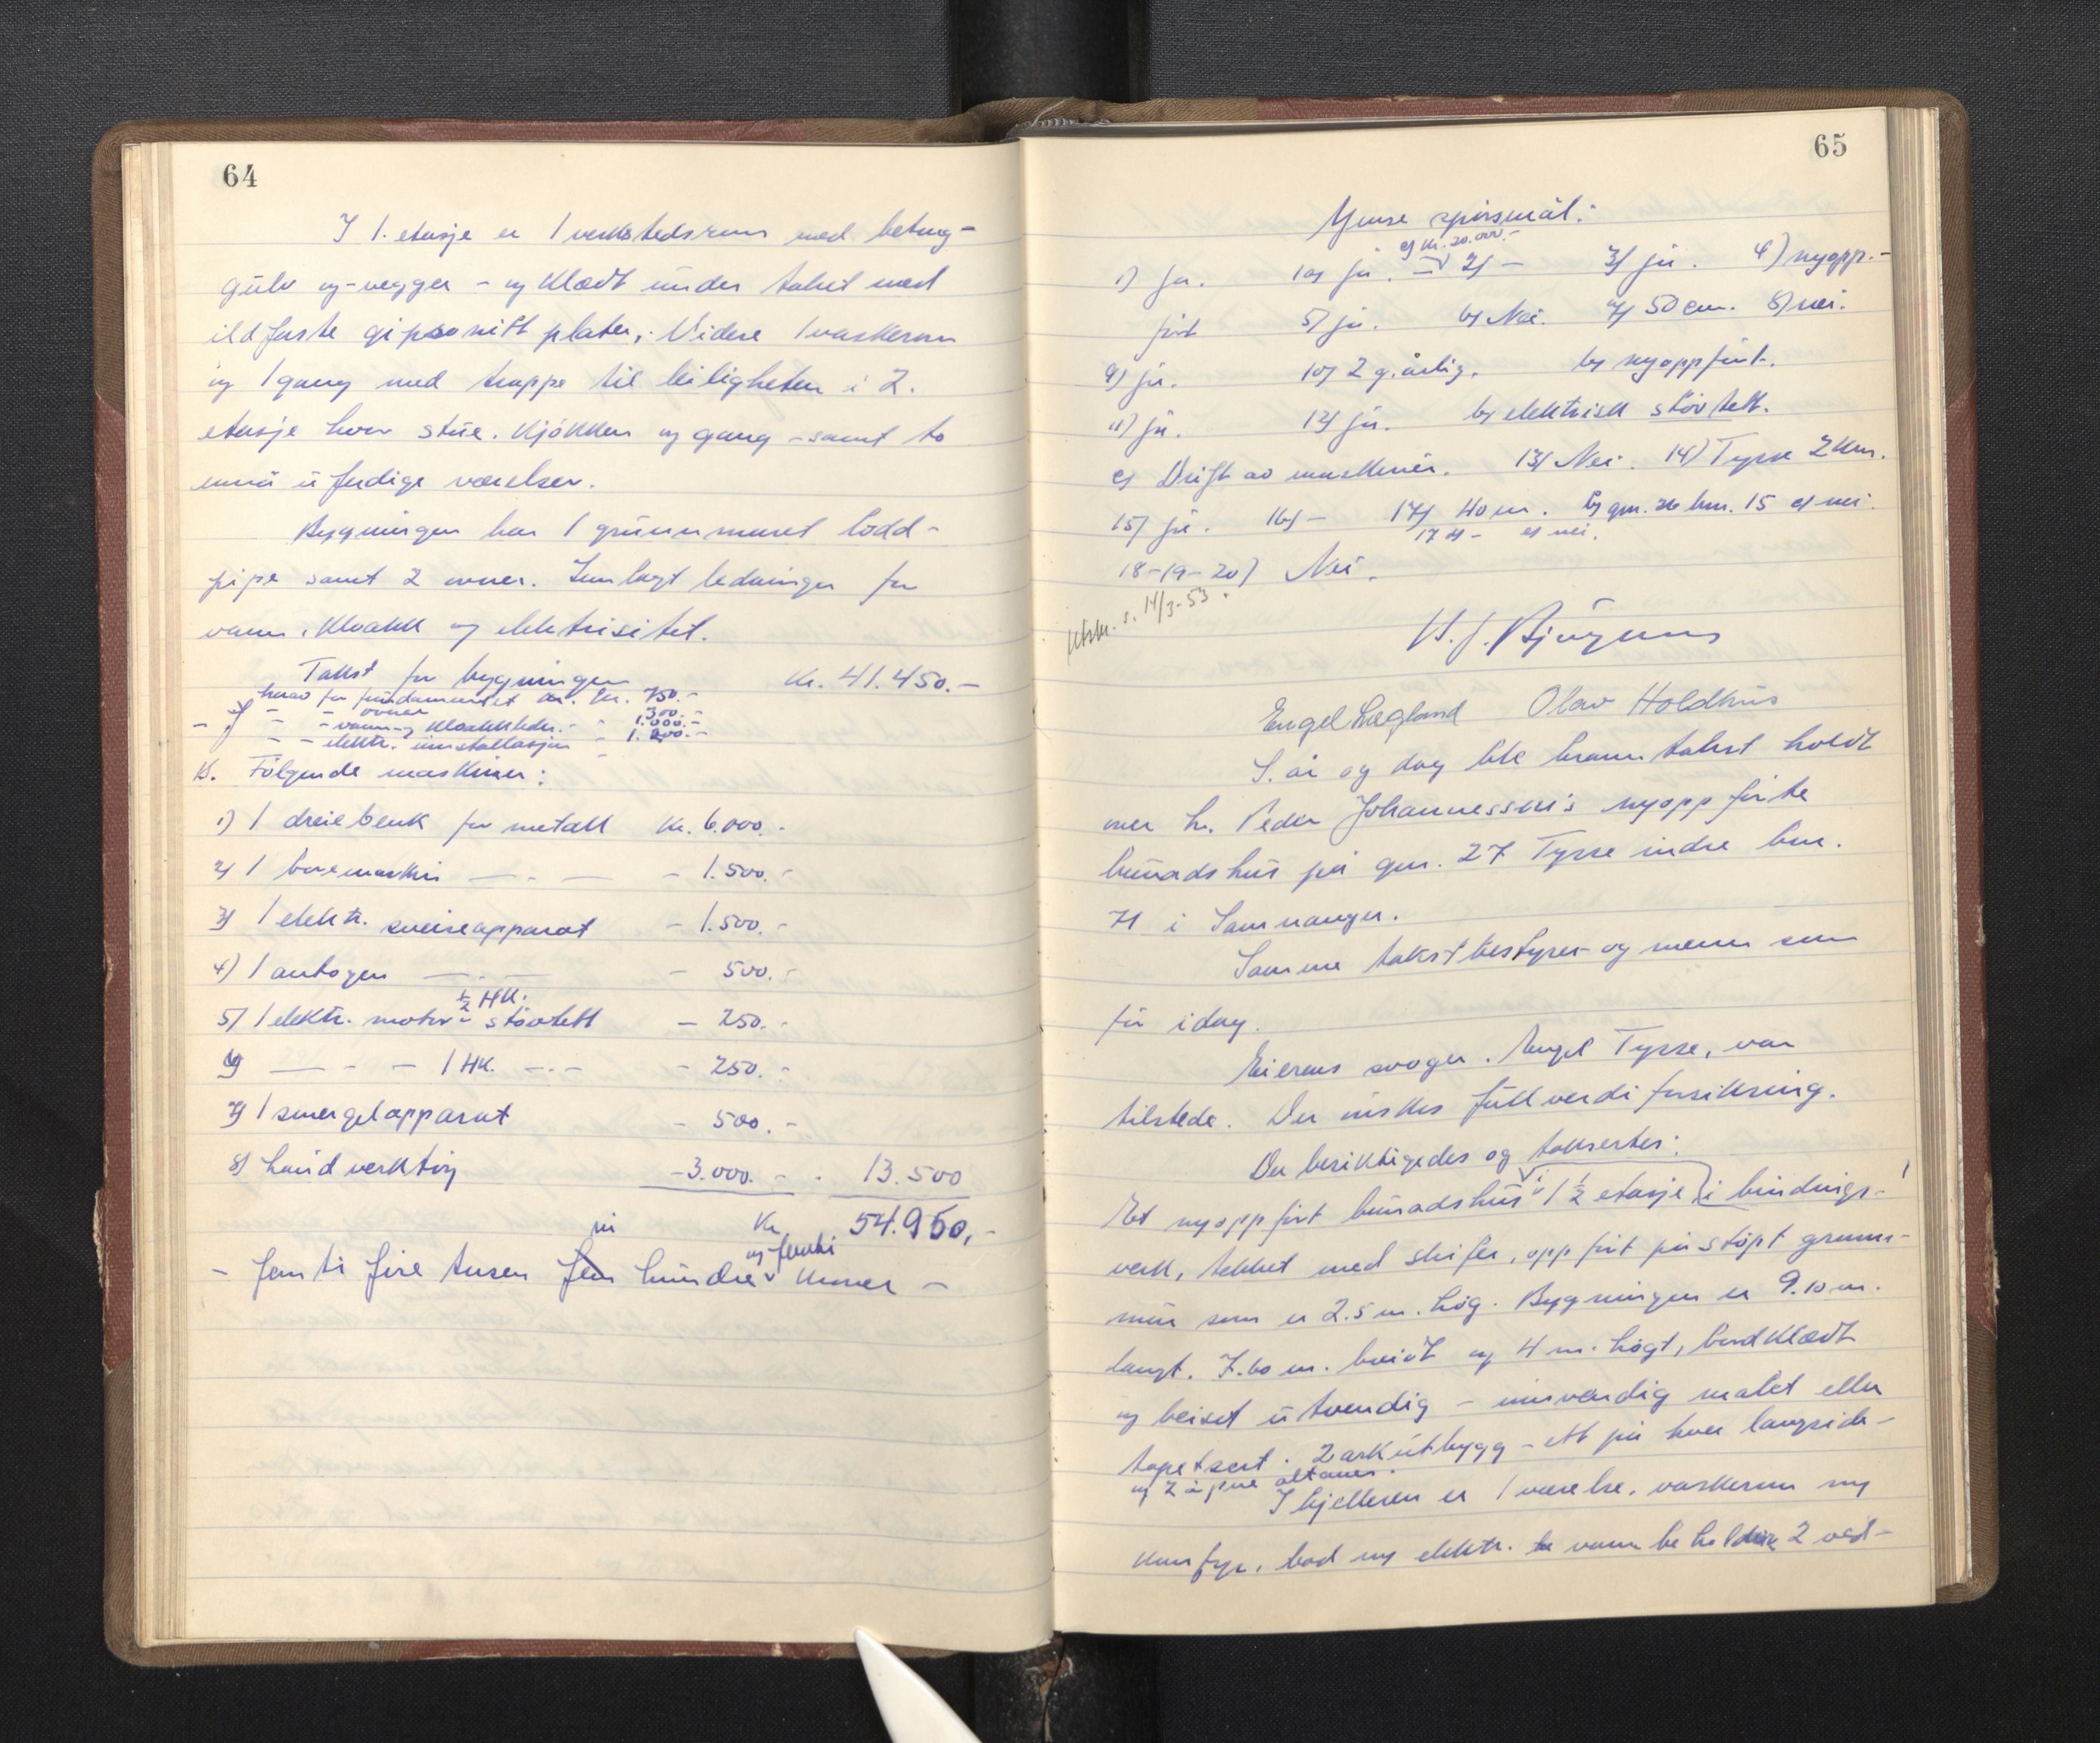 64
I 1. etasje er 1 verkstedsrum med betong-
gulv og -vegger - og klædt under taket med
ildfaste gipsonitt plater, Videre 1 vaskerum
og 1 gang med trappe til leiligheten i 2.
etasje hvor stue. kjøkken og gang - samt to
ennå uferdige værelser.
Bygningen har 1 grunnmuret lodd-
pipe samt 2 ovner. Innlagt ledninger for
vann, kloakk og elektrisitet.
Takst for bygningen Kr. 41.450.-
herav for fundamentet Kr. 750.-
- " - - ovner 300.-
- " - - vann og kloakkledn. - - 1.000.-
- - elektr. installasjon - 1.200.-
B. Følgende maskiner:
1) 1 dreiebenk for metall Kr. 6.000.-
2) 1 boremaskin — - — - 1.500.-
3) 1 elektr. sveiseapparat - 1.500.-
4) 1 autogen — - — - 500.-
½ HK.
5) 1 elektr. motor - støvtett - 250.-
6) — - - 1 HK. - - - - 250.-
7) 1 smergelapparat - 500.-
8) håndverktøy - 3.000.- - 13.500
Kr 54.950,-
ni og femti
- femti fire tusen fem hundre kroner -
65
Ymse spørsmål:
c) kr. 20.000.-
1) ja. 1a) ja. - 2) - 3) ja. 4) nyopp.-
ført 5) ja. 6) Nei. 7) 50 cm. 8) nei.
9) ja. 10) 2 g. årlig. b) nyoppført.
11) ja. 12) ja. b) elektrisk støvtett.
c) Drift av maskiner. 13) Nei. 14) Tysse 2 km.
15) ja. 16) - 17) 40 m. b) gnr. 26 bnr. 15 c) nei.
17 d - e) nei.
18-19-20) Nei.
Utskr. s. 14/3-53.
Engel Lægland Olav Holdhus
S. år og dag ble branntakst holdt
over hr. Peder Johannessen's nyoppførte
bunadshus på gnr. 27 Tysse indre bnr.
71 i Samnanger.
Samme takstbestyrer og menn som
før idag.
Eierens svoger. Engel Tysse, var
tilstede. Der ønskes fullverdi forsikring.
Der besiktigedes og taksertes:
Et nyoppført bunadshus i 1 ½ etasje i bindings-
verk, tekket med skifer, oppført på støpt grunn-
mur som er 2.5 m. høg. Bygningen er 9.10 m.
langt. 7.60 m. breidt og 4 m. høgt, bordklædt
og beiset utvendig - innvendig malet eller
tapetsert. 2 arkutbygg - ett på hver langside -
og 2 åpne altaner.
I kjelleren er 1 værelse, vaskerum m/
komfyr, bad m/ elektr. vannbeholder 2 ved-